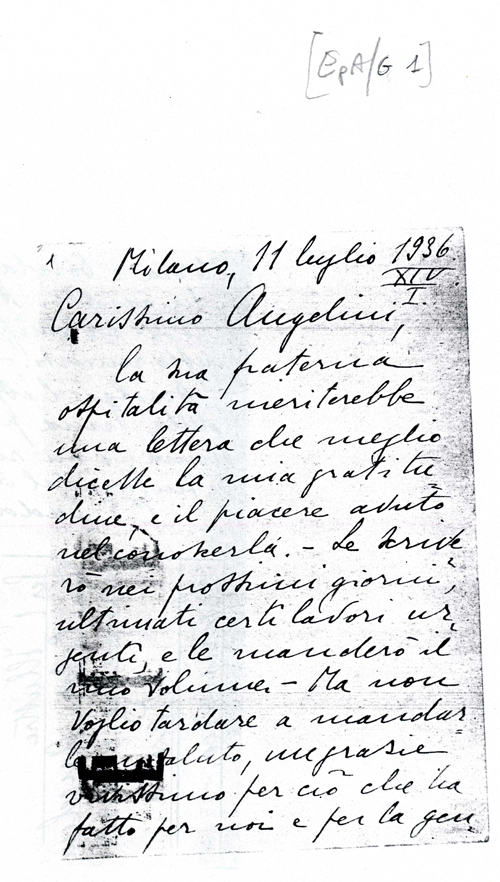 [EpA/G 1]
1
Milano, 11 luglio 1936
XIV
I.
Carissimo Angelini,
la sua fraterna
ospitalità meriterebbe
una lettera che meglio
dicesse la mia gratitu=
dine, e il piacere avuto
nel conoscerla. - Le scrive
rò nei prossimi giorni,
ultimati certi lavori ur=
genti, e le manderò il
mio volume. - Ma non
voglio tardare a mandar
le saluto, un grazie
vivissimo per ciò che ha
fatto per noi e per la gen